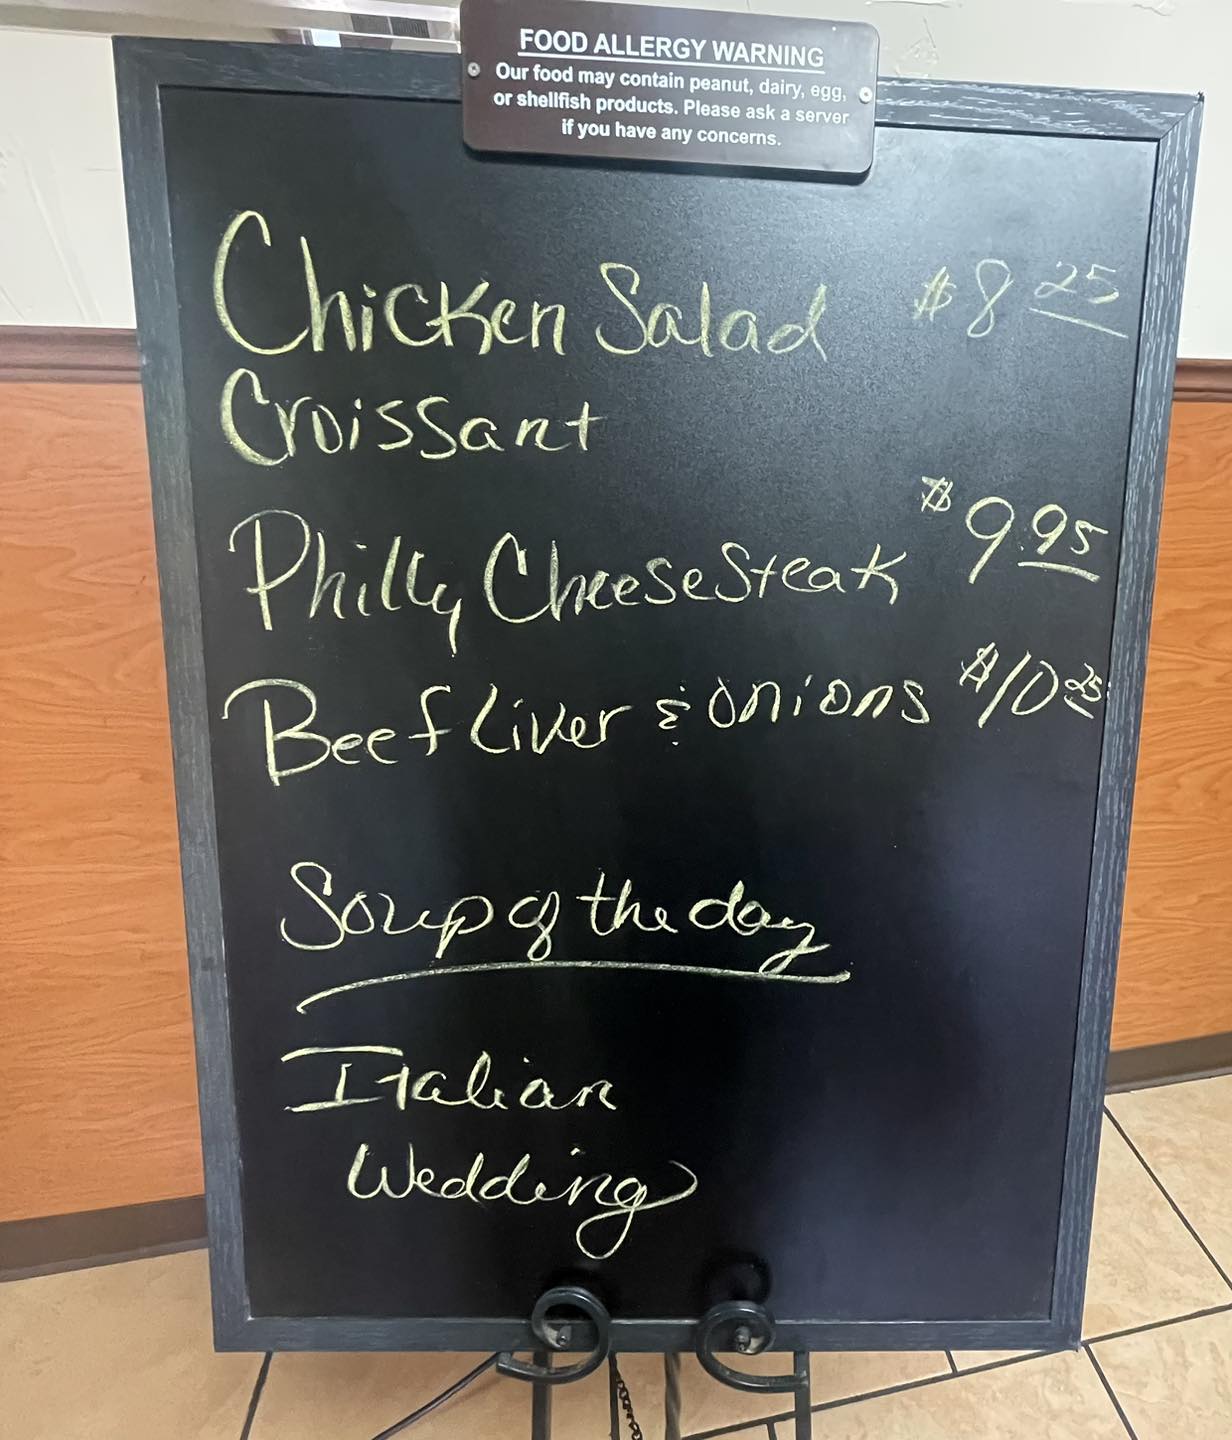 FOOD ALLERGY WARNING
Our food may contain peanut, dairy, egg,
or shellfish products. Please ask a server
if you have any concerns.
Chicken Salad $8 25
Croissant
Philly CheeseSteak $9.95
Beef Liver & onions $10 25
Soup of the day
Italian
Wedding